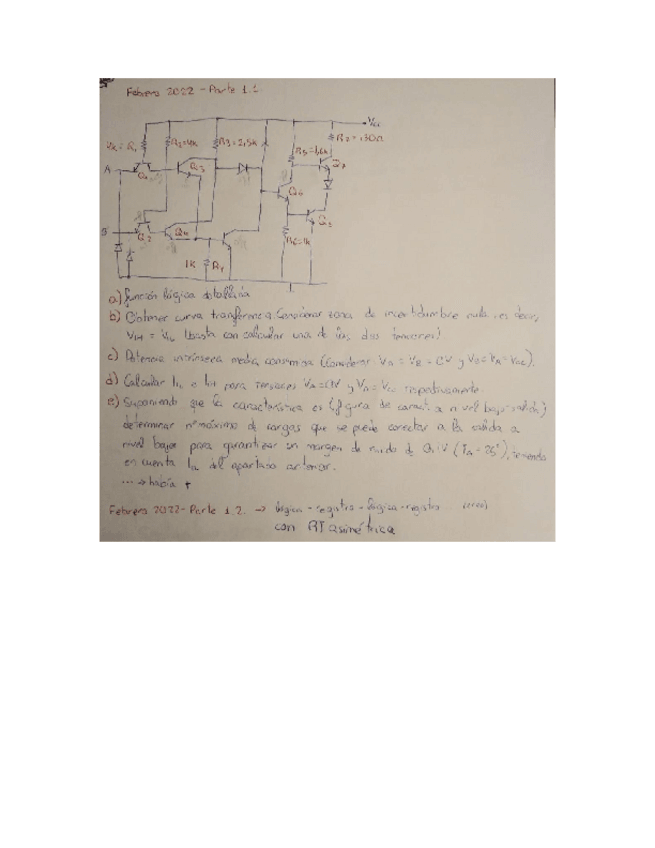 Febrero 2022 - Parte 1.1.
Vcc
R2=4k
R3=2,5k
R5=1,6k
R7=130Ω
A
Q1
Q3
Q6
B
Q2
Q4
Q5
R6=1k
1k
R4
a) función lógica detallada
b) Obtener curva transferencia. Considerar zona de incertidumbre nula, es decir,
(basta con calcular una de las dos tensiones)
c) Potencia intrínseca media consumida (Considerar VA = VB = 0V y VB=VA=Vcc).
d) Calcular IIL e IIH para tensiones VA=0V y VA=Vcc respectivamente.
e) Suponiendo que la característica es (figura de caract. a nivel bajo salida)
determinar nº máximo de cargas que se puede conectar a la salida a
nivel bajo para garantizar un margen de ruido de 0,4V (TA=25°), teniendo
en cuenta del apartado anterior.
... → había
Febrero 2022 - Parte 1.2. → lógica - registro - lógica - registro
con RT asimétrica